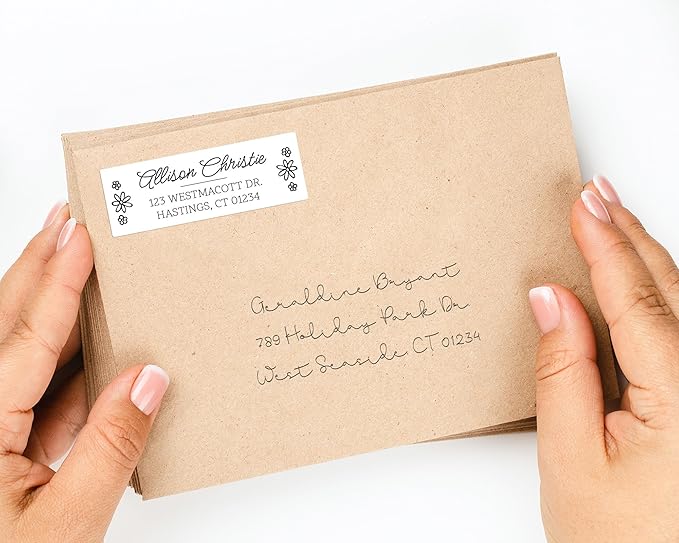 Allison Christie
123 WESTMACOTT DR.
HASTINGS, CT 01234
Geraldine Bryant
789 Holiday Park Dr.
West Seaside CT 01234